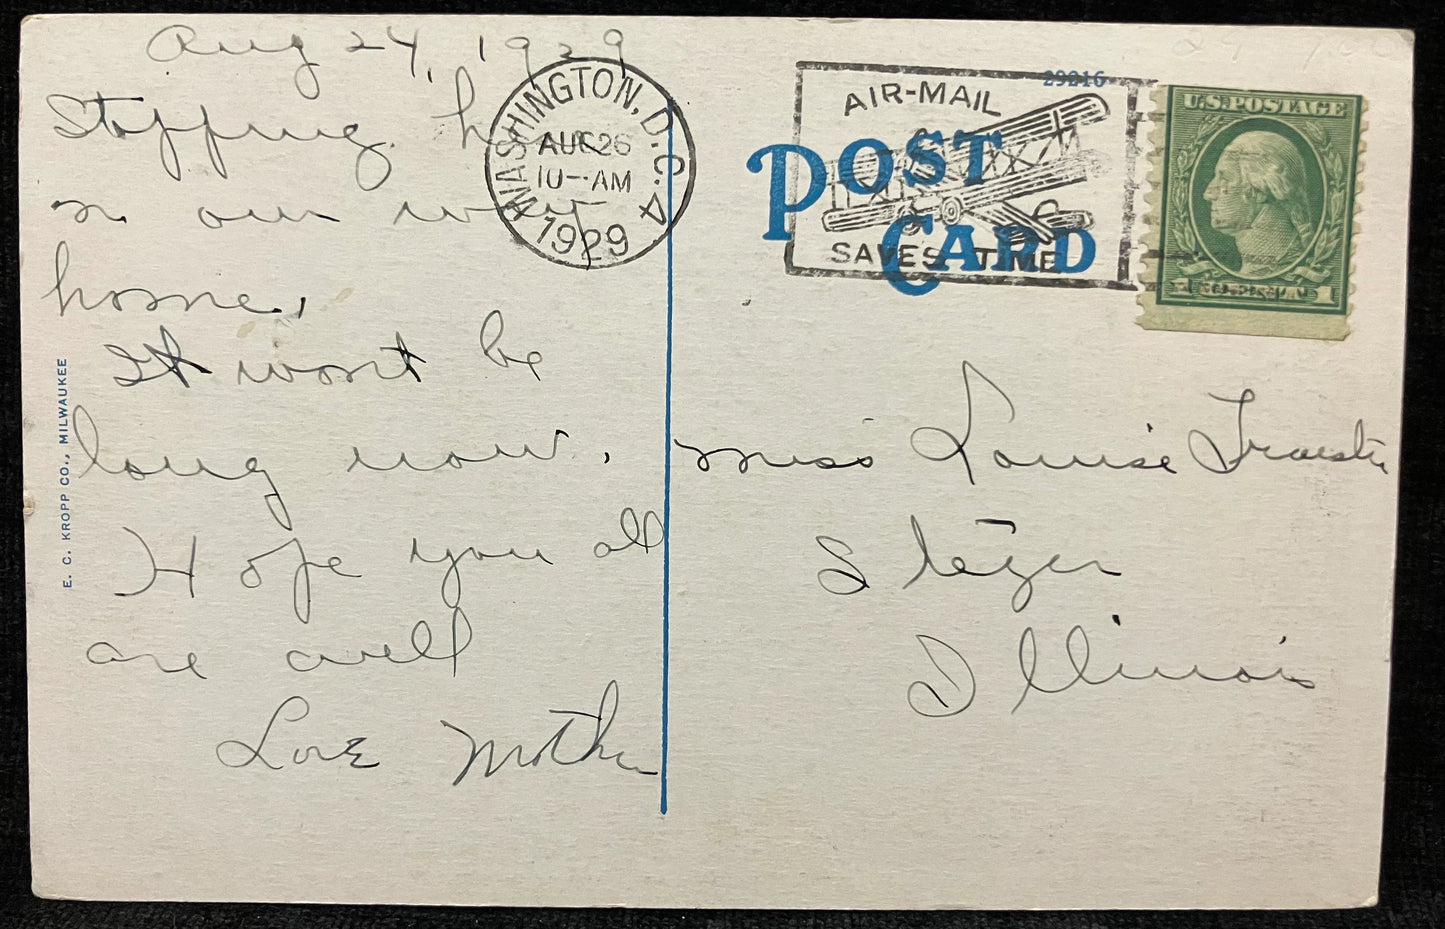 Aug 24, 1929
Stopping here
on our way
home,
It wont be
long now.
Hope you all
are well
Love Mother
E. C. KROPP CO., MILWAUKEE
WASHINGTON, D.C. 4
AUG 26
10-AM
1929
29216
AIR-MAIL
SAVES TIME
POST
CARD
U.S. POSTAGE
1
Miss Louise
Steger
Illinois